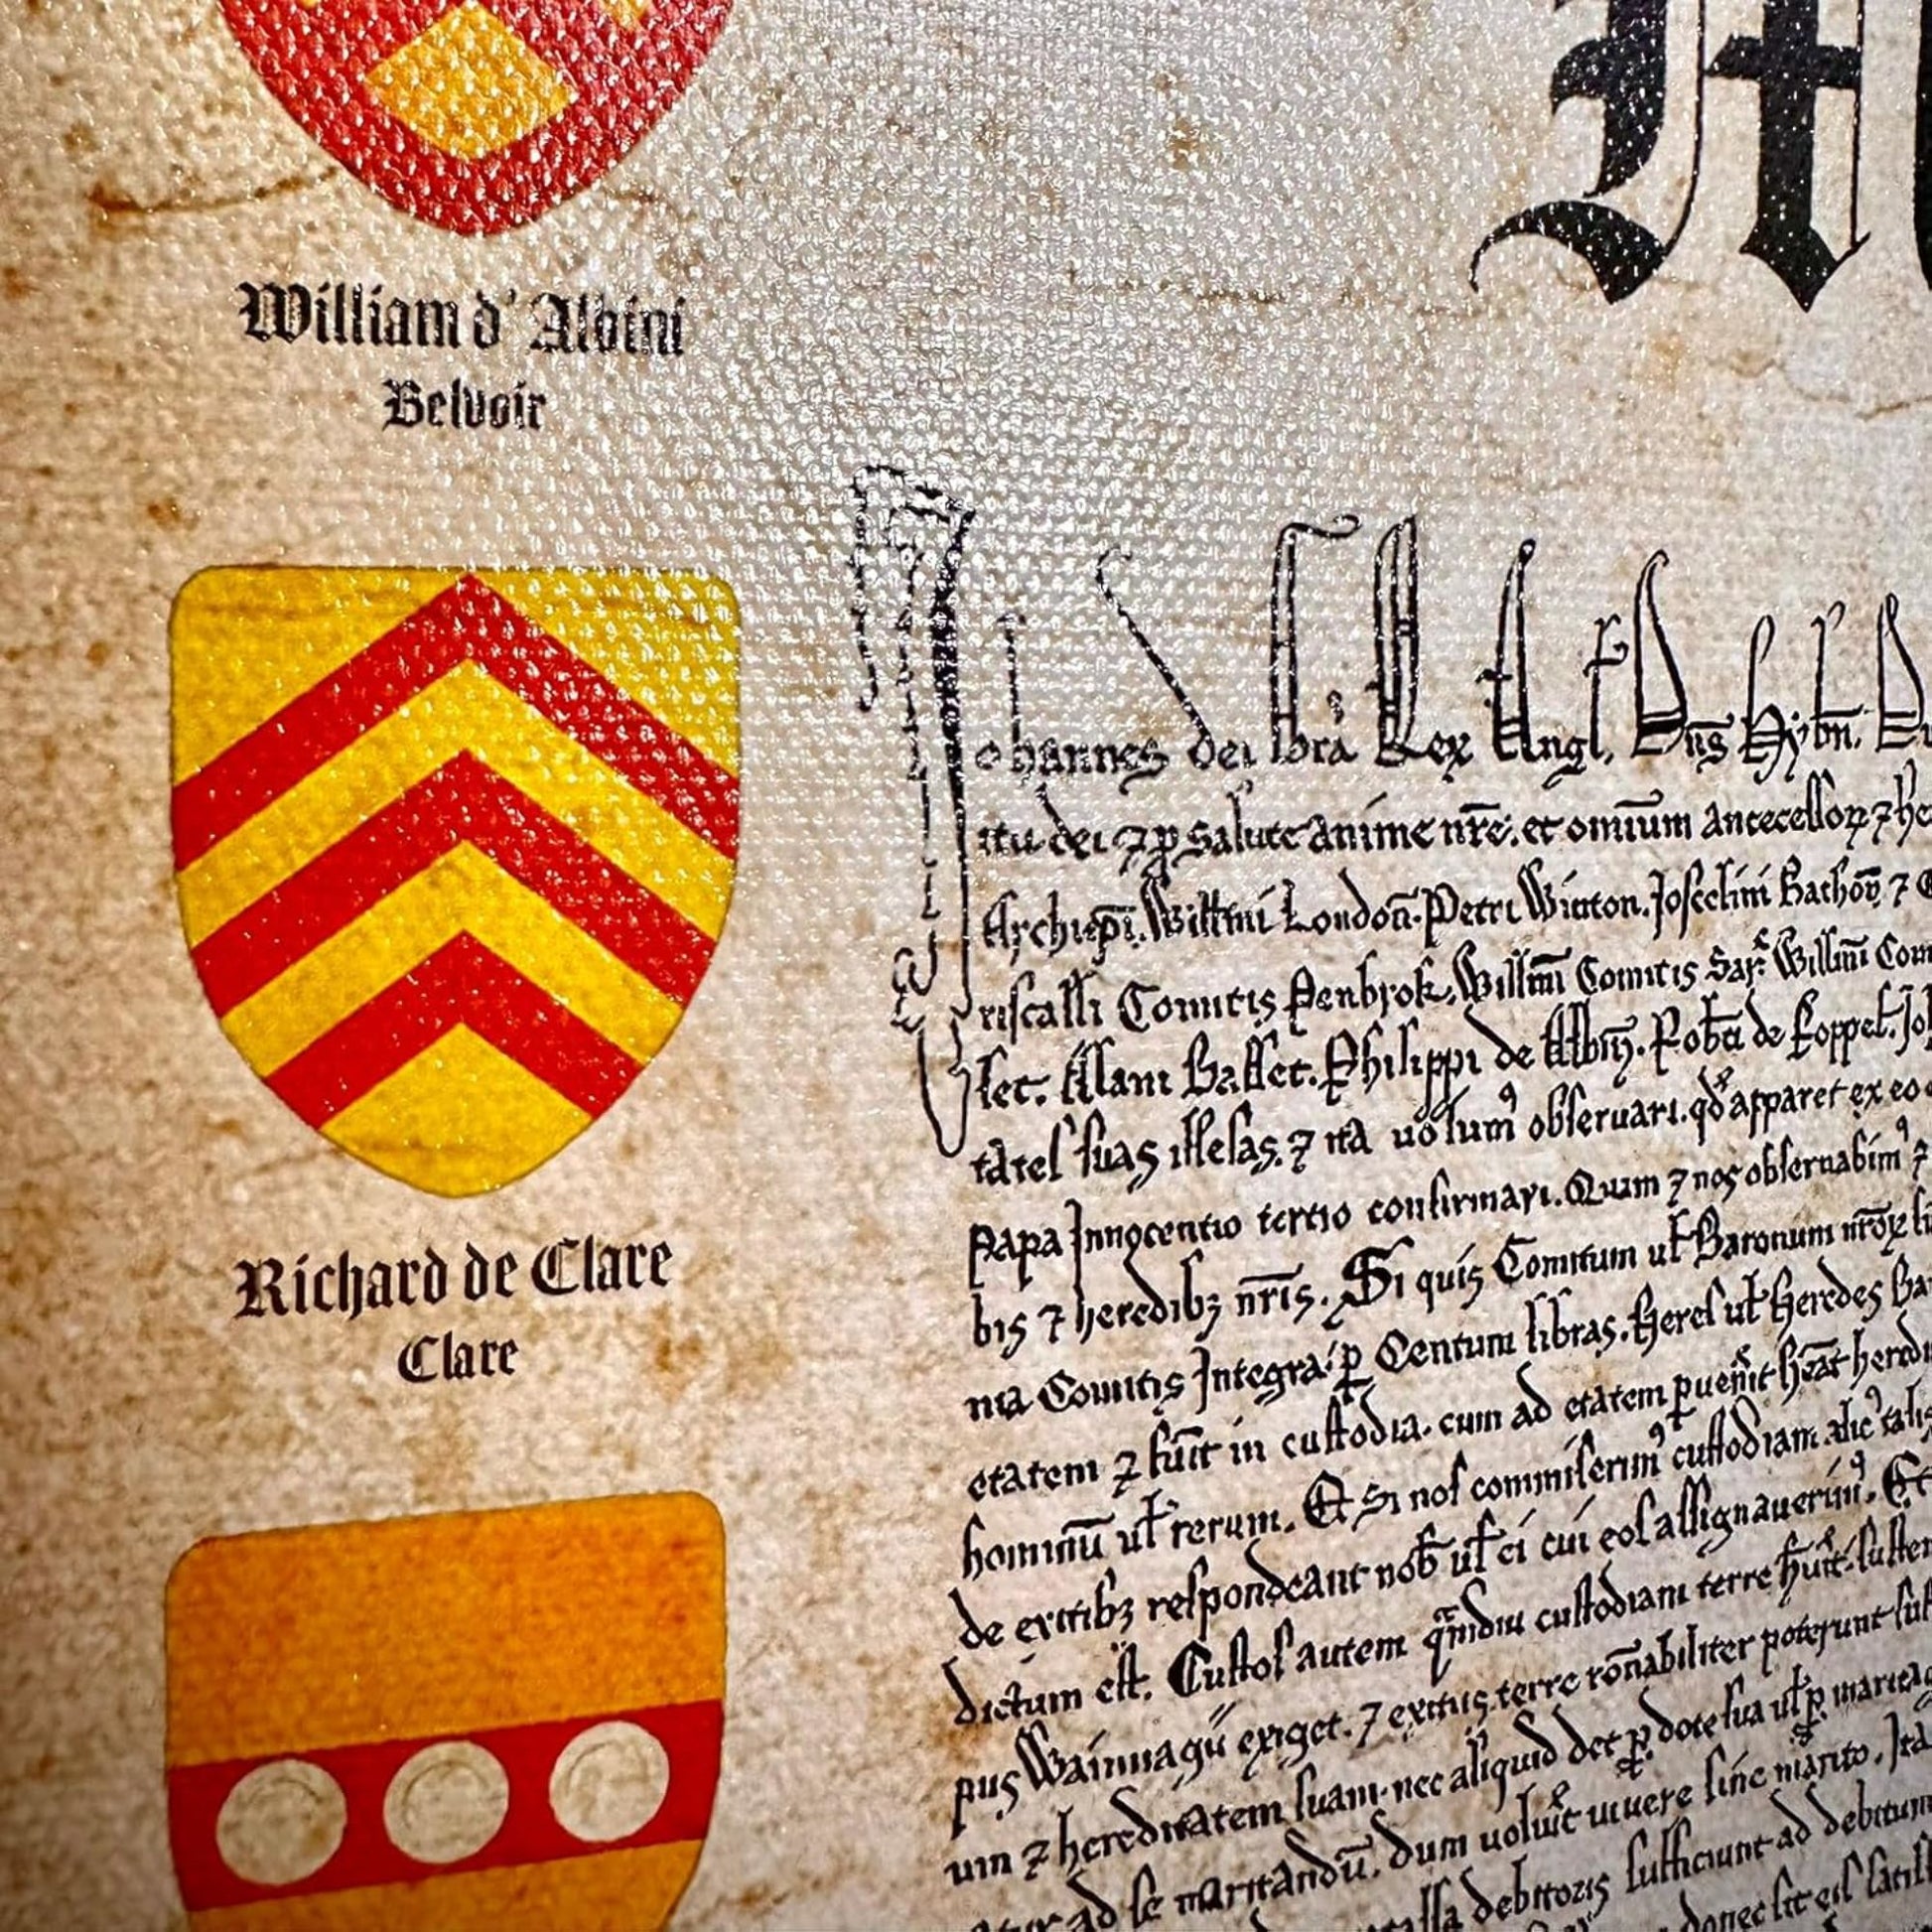 M
William d' Albini
Belvoir
Richard de Clare
Clare
Johannes dei gra Rex Angl. Dns Hybn.
itu dei ⁊ p salute anime nre. et omium antecessoꝝ ⁊ he
Archiepi. Willmi London. Petri Winton. Joscelini Bathon ⁊
riscalli Comitis Penbrok. Willmi Comitis Sar. Willmi Com
set. Alani Basset. Philippi de Albin. Robti de Roppel. Jo
tates suas illesas. ⁊ ita uolum obseruari. qd apparet ex eo
Papa Innocentio tertio confirmari. Quam ⁊ nos obseruabim ⁊
bis ⁊ heredibꝫ nris. Si quis Comitum ul Baronum nroꝝ
nia Comitis Integra p Centum libras. heres ul heredes Ba
etatem ⁊ fuit in custodia. cum ad etatem puenit heat heredi
hominu ul rerum. Et si nos commiserim custodiam alic tali
de exitibꝫ respondeant nob ul ei cui eos assignauerim. Et
dictum est. Custos autem qmdiu custodiam terre huit. susten
pus Wainnagii exiget. ⁊ exitus terre ronabiliter poterunt sus
uin ⁊ hereditatem suam. nec aliquid det p dote sua ul p maritag
ad se maritandu. dum uoluit uiuere sine marito. Ita
debitoris sufficiunt ad debitum
donec sit eis satis